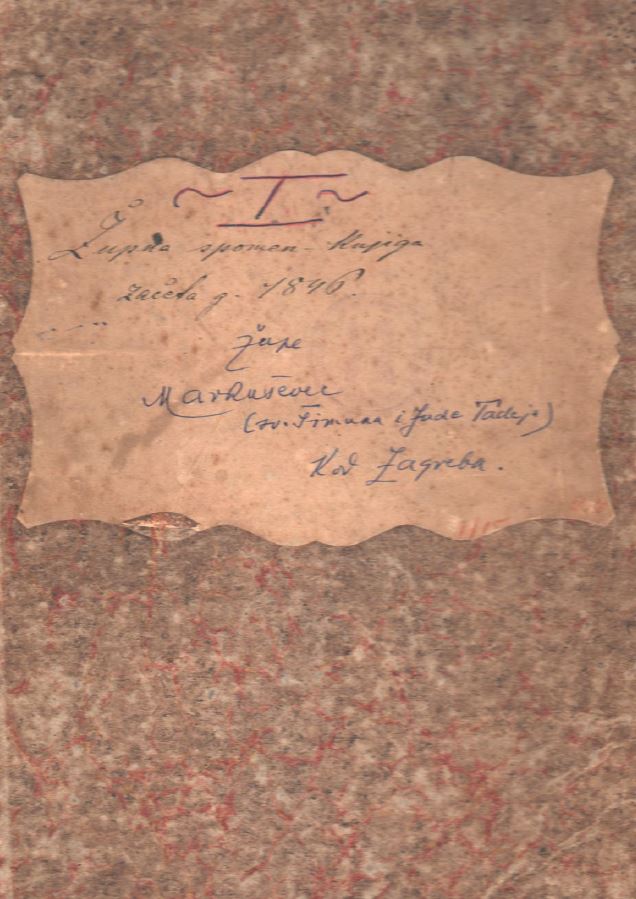 ~ I ~
Župna spomen-knjiga
začeta g. 1846.
župe
Markuševec
(sv. Šimuna i Jude Tadeja)
Kod Zagreba.